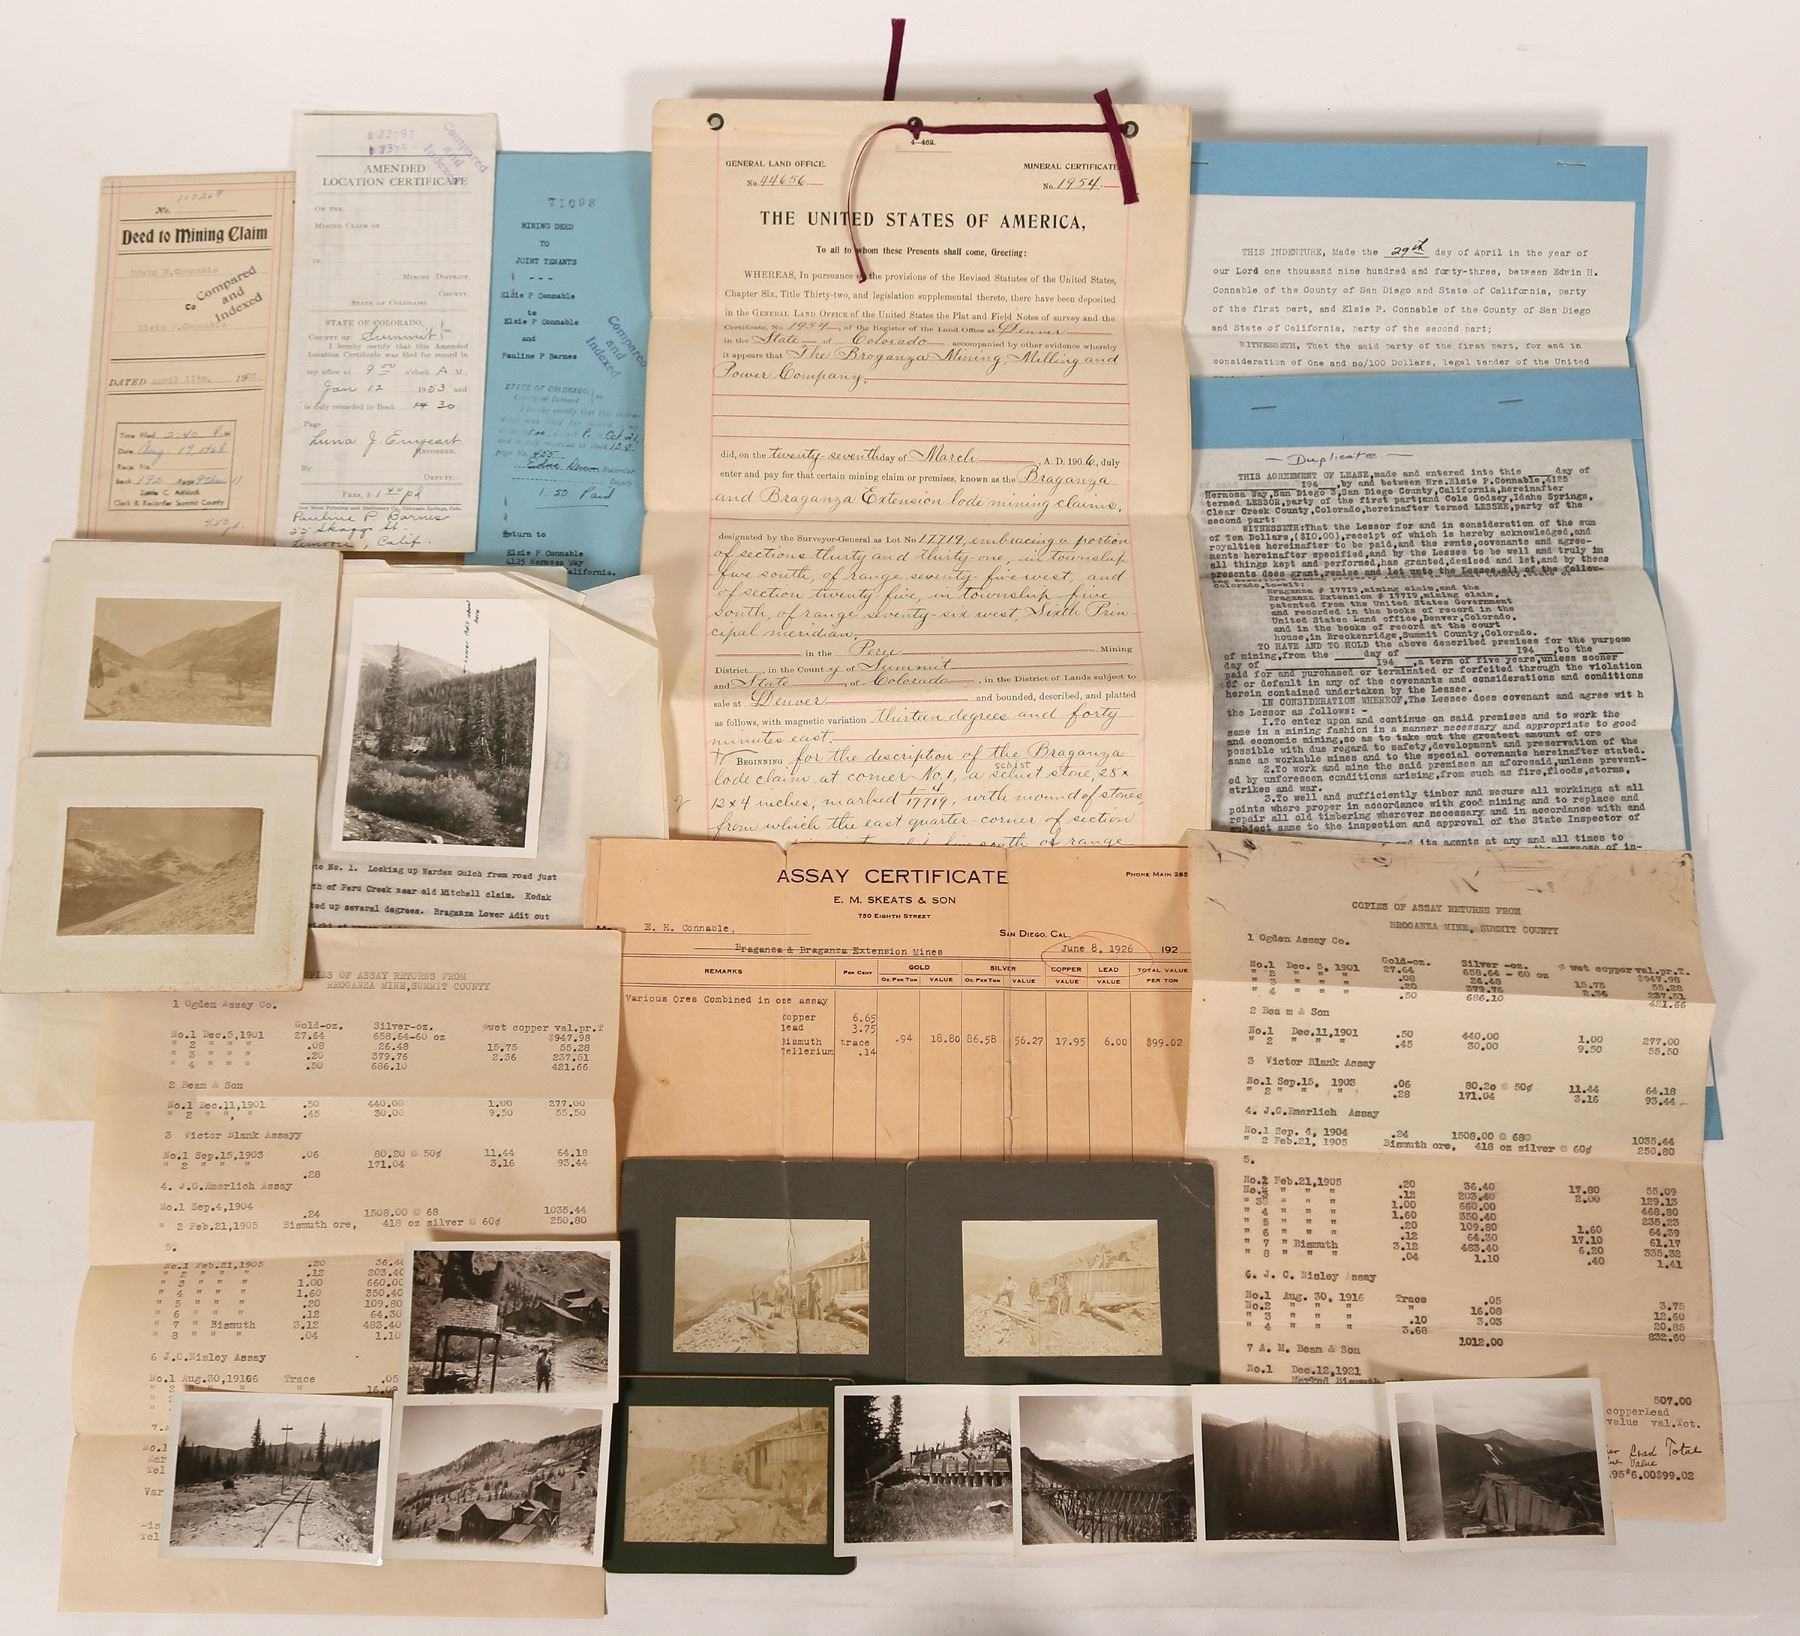 110269
No.
Deed to Mining Claim
Edwin H. Connable
to
Elsie P. Connable
Compared
and
Indexed
DATED April 11th, 19
Time Filed 2:40 P.M
Date Aug. 19, 1968
Recp. No.
Book 192 Page
Clerk & Recorder Summit County
4.50 pd.
AMENDED
LOCATION CERTIFICATE
Compared
and
Indexed
ON THE
MINING CLAIM OF
IN
MINING DISTRICT,
COUNTY,
STATE OF COLORADO.
STATE OF COLORADO,
COUNTY OF Summit
I hereby certify that this Amended
Location Certificate was filed for record in
my office at 9 00 o'clock A M.,
Jan 12 1953 and
is duly recorded in Book 30
Page
RECORDER.
By
DEPUTY.
FEES, $ 1 40 pd
Pauline P. Barnes
55 Skagg St.
Lemoore, Calif.
71098
MINING DEED
TO
JOINT TENANTS
- - -
Elsie P Connable
to
Elsie P Connable
and
Pauline P Barnes
Compared
and
Indexed
STATE OF COLORADO,
County of Summit
1.50 Paid
Return to
Elsie P Connable
4125 Hermosa Way
California.
4-462.
GENERAL LAND OFFICE.
No. 44656.
MINERAL CERTIFICATE
No. 1954.
THE UNITED STATES OF AMERICA,
To all to whom these Presents shall come, Greeting:
WHEREAS, In pursuance of the provisions of the Revised Statutes of the United States,
Chapter Six, Title Thirty-two, and legislation supplemental thereto, there have been deposited
in the GENERAL LAND OFFICE of the United States the Plat and Field Notes of survey and the
Certificate, No. 1954, of the Register of the Land Office at Denver
in the State of Colorado accompanied by other evidence whereby
it appears that The Broganza Mining Milling and
Power Company,
did, on the twenty-seventh day of March, A. D. 1906, duly
enter and pay for that certain mining claim or premises, known as the Braganza
and Braganza Extension lode mining claims,
designated by the Surveyor-General as Lot No. 17719, embracing a portion
of sections thirty and thirty-one, in township
five south, of range seventy-five west, and
of section twenty-five, in township five
south, of range seventy-six west, Sixth Prin-
cipal meridian,
in the Peru Mining
District, in the County of Summit
and State of Colorado, in the District of Lands subject to
sale at Denver and bounded, described, and platted
as follows, with magnetic variation thirteen degrees and forty
minutes east.
BEGINNING for the description of the Braganza
schist
lode claim at corner No. 1, a schist stone, 28 x
12 x 4 inches, marked 1-4/17719, with mound of stones,
from which the east quarter-corner of section
south of range
THIS INDENTURE, Made the 29th day of April in the year of
our Lord one thousand nine hundred and forty-three, between Edwin H.
Connable of the County of San Diego and State of California, party
of the first part, and Elsie P. Connable of the County of San Diego
and State of California, party of the second part;
WITNESSETH, That the said party of the first part, for and in
consideration of One and no/100 Dollars, legal tender of the United
- Duplicate -
THIS AGREEMENT OF LEASE,made and entered into this ____day of
194__,by and between Mrs.Elsie P.Connable,4125
Hermosa Way,San Diego 3,San Diego County,California,hereinafter
termed LESSOR,party of the first part;and Cole Godsey,Idaho Springs,
Clear Creek County,Colorado,hereinafter termed LESSEE,party of the
second part:
WITNESSETH:That the Lessor for and in consideration of the sum
of Ten Dollars,($10.00),receipt of which is hereby acknowledged,and
royalties hereinafter to be paid,and the rents,covenants and agree-
ments hereinafter specified,and by the Lessee to be well and truly in
all things kept and performed,has granted,demised and let,and by these
presents does grant,remise and let unto the Lessee,all of the follow-
Colorado,to-wit:
Braganza # 17719,mining claim,and the
Braganza Extension # 17719,mining claim,
patented from the United States Government
and recorded in the books of record in the
United States Land office,Denver,Colorado,
and in the books of record at the court
house,in Breckenridge,Summit County,Colorado.
TO HAVE AND TO HOLD the above described premises for the purpose
of mining,from the ____ day of ____ 194__,to the ____
day of ____ 194__,a term of five years,unless sooner
paid for and purchased or terminated or forfeited through the violation
of or default in any of the covenants and considerations and conditions
herein contained undertaken by the Lessee.
IN CONSIDERATION WHEREOF,The Lessee does covenant and agree wit h
the Lessor as follows: -
1.To enter upon and continue on said premises and to work the
same in a mining fashion in a manner necessary and appropriate to good
and economic mining,so as to take out the greatest amount of ore
possible with due regard to safety,development and preservation of the
same as workable mines and to the special covenants hereinafter stated.
2.To work and mine the said premises as aforesaid,unless prevent-
ed by unforeseen conditions arising,from such as fire,floods,storms,
strikes and war.
3.To well and sufficiently timber and secure all workings at all
points where proper in accordance with good mining and to replace and
repair all old timbering wherever necessary and in accordance with and
subject same to the inspection and approval of the State Inspector of
and its agents at any and all times to
to No. 1. Looking up Warden Gulch from road just
th of Peru Creek near old Mitchell claim. Kodak
ted up several degrees. Braganza Lower Adit out
ASSAY CERTIFICATE
PHONE MAIN 285
E. M. SKEATS & SON
750 EIGHTH STREET
E. H. Connable,
SAN DIEGO, CAL.
Braganza & Braganza Extension Mines
June 8, 1926 192
REMARKS PER CENT GOLD SILVER COPPER LEAD TOTAL VALUE
OZ. PER TON VALUE OZ. PER TON VALUE VALUE VALUE PER TON
Various Ores Combined in one assay
Copper 6.65
Lead 3.75
Bismuth trace .94 18.80 86.58 56.27 17.95 6.00 $99.02
Tellerium .14
COPIES OF ASSAY RETURNS FROM
BROGANZA MINE,SUMMIT COUNTY
1 Ogden Assay Co.
Gold-oz. Silver-oz. %wet copper val.pr.T
No.1 Dec.5,1901 27.64 658.64-60 oz $947.98
" 2 " " " .08 26.48 15.75 55.28
" 3 " " " .20 379.76 2.36 237.51
" 4 " " " .50 686.10 421.66
2 Beam & Son
No.1 Dec.11,1901 .50 440.00 1.00 277.00
" 2 " " " .45 30.00 9.50 55.50
3 Victor Blank Assayy
No.1 Sep.15,1903 .06 80.20 @ 50¢ 11.44 64.18
" 2 " " " 171.04 3.16 93.44
.28
4. J.G.Emerlich Assay
No.1 Sep.4,1904 .24 1508.00 @ 68 1035.44
" 2 Feb.21,1905 Bismuth ore, 418 oz silver @ 60¢ 250.80
5.
No.1 Feb.21,1905 .20 36.40
" 2 " " " .12 203.40
" 3 " " " 1.00 660.00
" 4 " " " 1.60 350.40
" 5 " " " .20 109.80
" 6 " " " .12 64.30
" 7 " " Bismuth 3.12 483.40
" 8 " " " .04 1.10
6 J.C.Risley Assay
No.1 Aug.30,19166 Trace .05
COPIES OF ASSAY RETURNS FROM
BROGANZA MINE, SUMMIT COUNTY
1 Ogden Assay Co.
Gold-oz. Silver -oz. % wet copper val.pr.T.
No.1 Dec. 5, 1901 27.64 658.64 - 60 oz $947.98
" 2 " " " .08 26.48 15.75 55.28
" 3 " " " .20 379.76 2.36 237.51
" 4 " " " .50 686.10 421.66
2 Beam & Son
No.1 Dec.11,1901 .50 440.00 1.00 277.00
" 2 " " " .45 30.00 9.50 55.50
3 Victor Blank Assay
No.1 Sep.15, 1903 .06 80.20 @ 50¢ 11.44 64.18
" 2 " " " .28 171.04 3.16 93.44
4. J.G.Emerlich Assay
No.1 Sep. 4, 1904 .24 1508.00 @ 68@ 1035.44
" 2 Feb.21, 1905 Bismuth ore, 418 oz silver @ 60¢ 250.80
5.
No.1 Feb.21,1905 .20 36.40 17.80 55.09
No.2 " " " .12 203.40 2.00 129.13
" 3 " " " 1.00 660.00 468.80
" 4 " " " 1.60 350.40 235.23
" 5 " " " .20 109.80 1.60 64.39
" 6 " " " .12 64.30 17.10 61.17
" 7 " " Bismuth 3.12 483.40 6.20 335.32
" 8 " " " .04 1.10 .40 1.41
6. J. C. Risley Assay
No.1 Aug. 30, 1916 Trace .05
No.2 " " " " 16.08 3.75
" 3 " " " .10 3.03 12.60
" 4 " " " 3.68 20.85
1012.00 832.60
7 A. M. Beam & Son
No.1 Dec.12,1921
Marked Bismuth
507.00
copperLead
value val.Tot.
Lead Total
Value
95*6.00$99.02